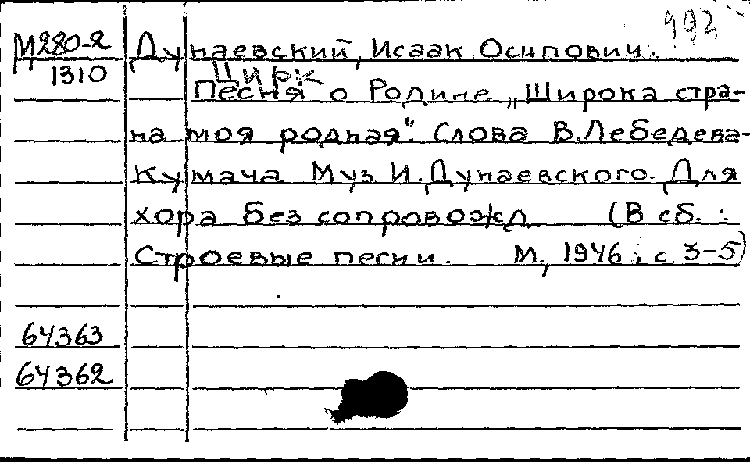 М280-2 Дунаевский, Исаак Осипович. 192
1310 Цирк
Песня о Родине „Широка стра-
на моя родная". Слова В.Лебедева-
Кумача Муз И.Дунаевского. Для
хора без сопровожд (В сб.:
Строевые песни. М, 1946; с 3-5)
64363
64362